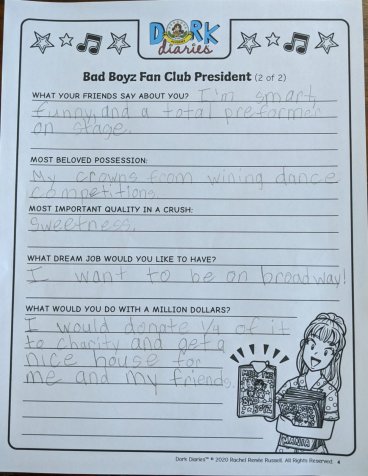 DORK
diaries
Bad Boyz Fan Club President (2 of 2)
WHAT YOUR FRIENDS SAY ABOUT YOU? I'm smart,
funny, and a total preformer
on stage.
MOST BELOVED POSSESSION:
My crowns from wining dance
competitions
MOST IMPORTANT QUALITY IN A CRUSH:
Sweetness.
WHAT DREAM JOB WOULD YOU LIKE TO HAVE?
I want to be on broadway!
WHAT WOULD YOU DO WITH A MILLION DOLLARS?
I would donate 1/4 of it
to charity and get a
nice house for
me and my friends.
Dork Diaries™ © 2020 Rachel Renée Russell. All Rights Reserved. 4